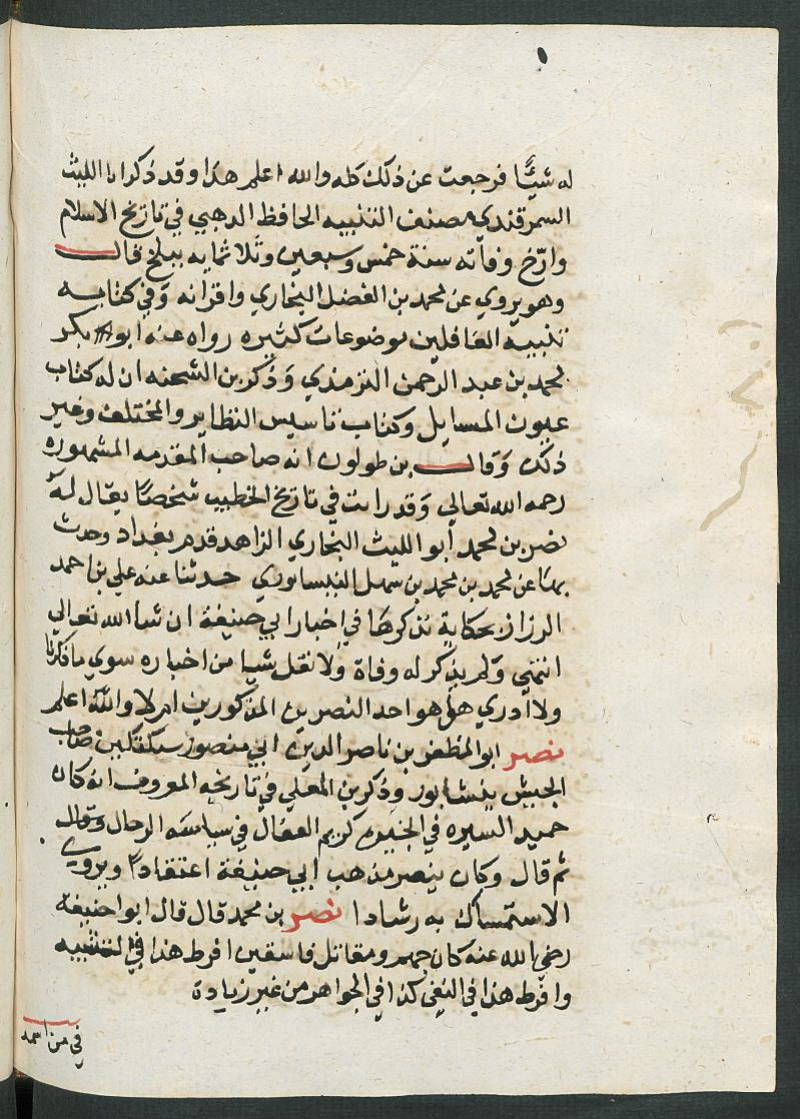 له شيئًا فرجعت عن ذلك كله والله اعلم هذا وقد ذكر ابا الليث
السمرقندي مصنف التنبيه الحافظ الذهبي في تاريخ الاسلام
وارّخ وفاته سنة خمس وسبعين وثلاثمايه ببلخ قال
وهو يروي عن محمد بن الفضل البخاري واقرانه وفي كتابه
تنبيه الغافلين موضوعات كثيره رواه عنه ابو بكر
محمد بن عبد الرحمن الترمذي وذكر بن الشحنه ان له كتاب
عيون المسايل وكتاب تاسيس النظاير والمختلف وغير
ذلك وقال بن طولون انه صاحب المقدمه المشهوره
رحمه الله تعالي وقد رات في تاريخ الخطيب شخصًا يقال له
نصر بن محمد أبو الليث البخاري الزاهد قدم بغداد وحدث
بها عن محمد بن محمد بن سهل النيسابوري حدثنا عنه علي بن احمد
الرزاز بحكاية نذكرها في اخبار ابي حنيفة ان شا الله تعالي
انتهي ولم يذكر له وفاة ولا نقل شيا من اخباره سوي ما ذكرنا
ولا أدري هل هو احد النصرين المذكورين ام لا والله اعلم
نصر ابو المظفر بن ناصر الدين ابي منصور سبكتكين صاحب
الجيش بنيشابور وذكر بن المعلي في تاريخه المعروف انه كان
حميد السيره في الجنود كريم الفعال في سياسة الرجال وقال
ثم قال وكان ينصر مذهب ابي حنيفة اعتقادًا ويروي
الاستمساك به رشادا نصر بن محمد قال قال ابو احنيفة
رضي الله عنه كان جهم ومقاتل فاسقين افرط هذا في التشبيه
وافرط هذا في النفي كذا في الجواهر من غير زيادة
في من اسمه